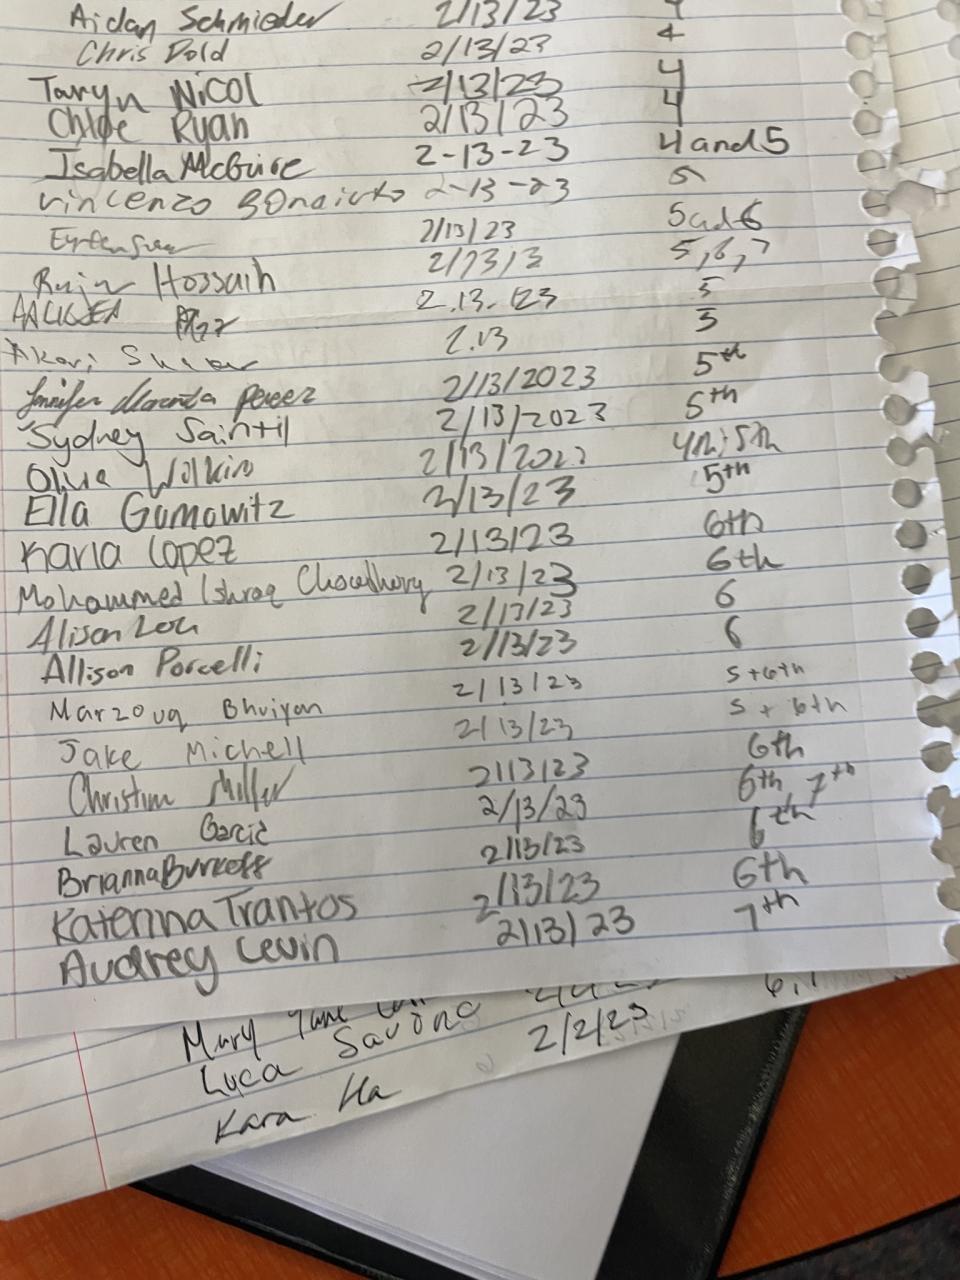 Aidan Schmieder 2/13/23 4
Chris Dold 2/13/23 4
Taryn Nicol 2/13/23 4
Chloe Ryan 2/13/23 4
Isabella McGuire 2-13-23 4 and 5
vincenzo 2-13-23 5
2/13/23 5 and 6
Hossain 5,6,7
2.13.23 5
Akari 2.13 5
Jennifer Perez 2/13/2023 5th
Sydney Saintil 2/13/2023 5th
Olivia Wolkin 4th, 5th
Ella Gomowitz 2/13/23 5th
Karla Lopez 2/13/23 6th
Mohammed Ishraq Chowdhury 2/13/23 6th
Alison 2/13/23 6
Allison Porcelli 2/13/23 6
Marzouq Bhuiyan 2/13/23 5+6th
Jake Michell 2/13/23 5+6th
Miller 2/13/23 6th
Lauren Garcia 2/13/23 6th, 7th
Brianna Burkett 2/13/23 6th
Katerina Trantos 2/13/23 6th
Audrey Levin 2/13/23 7th
Mary Jane
Luca Savino 2/2/23
Kara Ha